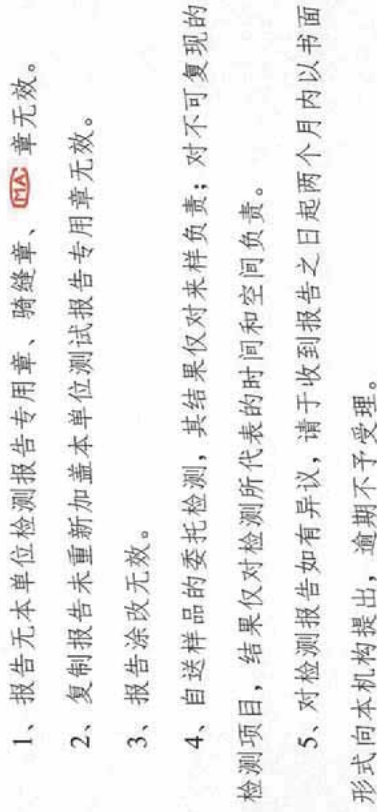 1、报告无本单位检测报告专用章、骑缝章、MA 章无效。
2、复制报告未重新加盖本单位测试报告专用章无效。
3、报告涂改无效。
4、自送样品的委托检测，其结果仅对来样负责；对不可复现的
检测项目，结果仅对检测所代表的时间和空间负责。
5、对检测报告如有异议，请于收到报告之日起两个月内以书面
形式向本机构提出，逾期不予受理。